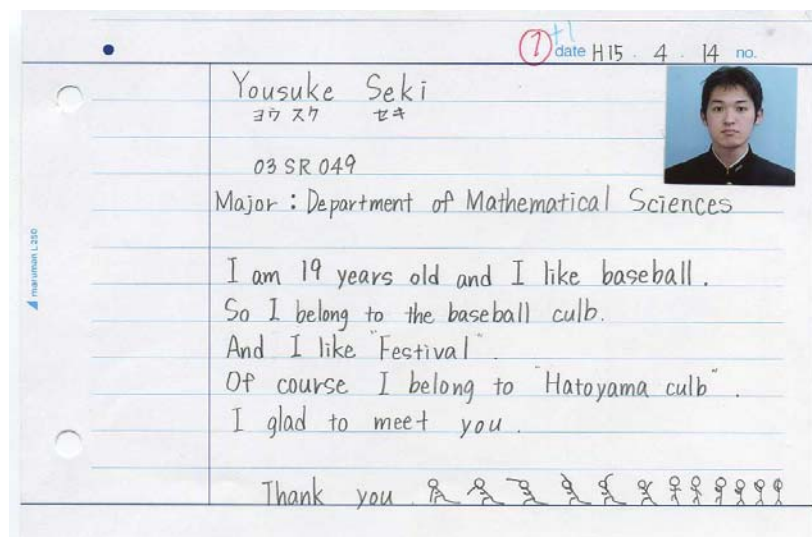 ① +1
date H15 . 4 . 14 no.
Yousuke Seki
ヨウスケ セキ
03 SR 049
Major : Department of Mathematical Sciences
maruman L250
I am 19 years old and I like baseball.
So I belong to the baseball culb.
And I like "Festival".
Of course I belong to "Hatoyama culb".
I glad to meet you.
Thank you.